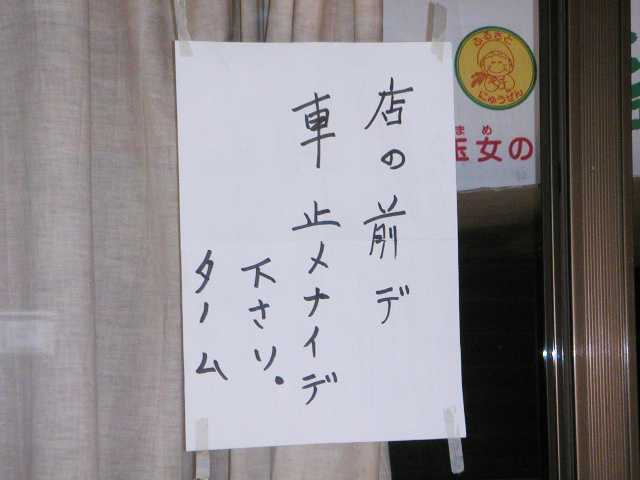 店の前デ
車止メナイデ
下さり.
ターム
ふるさと
にゅうぜん
まめ
女の